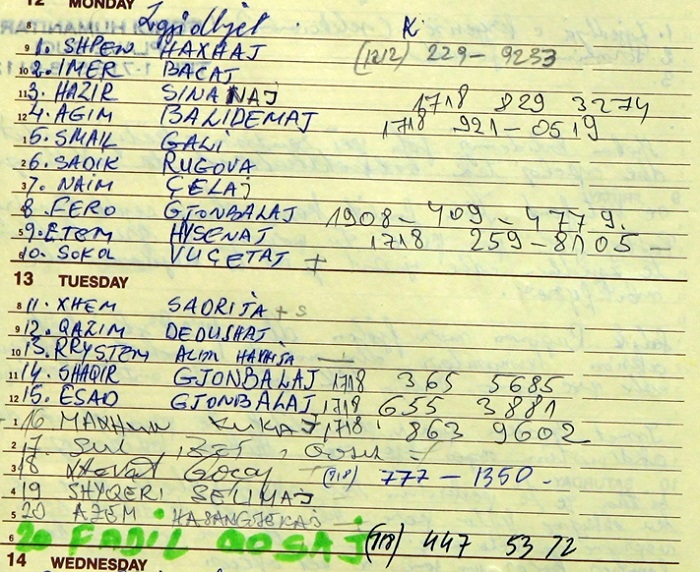 12 MONDAY
8 Zgjidhjet K
9 1. SHPEN HAXHAJ (1212) 229-9233
10 2. IMER BACAJ
11 3. HAZIR SINANAJ 1718 829 3274
12 4. AGIM BALIDEMAJ 1718 921-0519
1 5. SMAIL GALI
2 6. SADIK RUGOVA
3 7. NAIM ÇELAJ
4 8. FERO GJONBALAJ 1908-409.4779.
5 9. ETEM HYSENAJ 1718 259-8105
6 10. SOKOL VUÇETAJ +
13 TUESDAY
8 11. XHEM SADRIJA + s
9 12. QAZIM DEDUSHAJ
10 13. RRYSTEM —
11 14. SHAQIR GJONBALAJ 1718 365 5685
12 15. ESAD GJONBALAJ 1718 655 3881
1 16 KUKAJ 1718 863 9602
2 17.
3 18 GOCAJ (718) 777-1350-
4 19 SHYQERI SELIMAJ
5 20 AZEM HASANGJEKAJ —
6 20 FADIL QOSAJ (718) 447 5372
14 WEDNESDAY